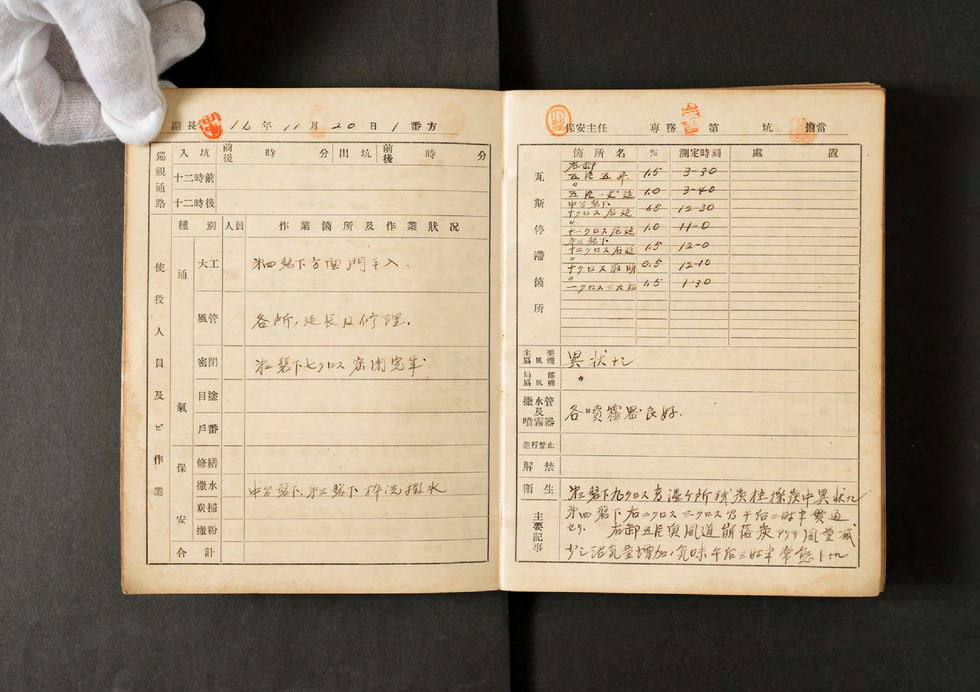 副長 16年11月20日1番方
巡視通路 入坑 前後 時 分 出坑 前後 時 分
十二時前
十二時後
種別 人員 作業箇所及作業狀況
使役人員及ビ作業
通氣
大工 第四盤下方面門手入.
風管 各所,延長及修理.
密閉 盤下七クロス密閉完牢
目塗
戶番
保安
修繕
撒水 中 盤下、 盤下 撒水
炭掃
撒粉
合計
保安主任 專務 第 坑 擔當
瓦斯停滯箇所
箇所名 % 測定時刻 處置
右卸
五片五昇 1.5 3-30
〃
五片 延 1.0 3-40
中 盤下
十クロス右延 1.5 12-30
〃
十一クロス右延 1.0 11-0
盤下
十二クロス右延 1.5 12-0
十クロス 0.5 12-10
〃
一クロス 1.5 1-30
主要扇風機 異狀ナシ
局部扇風機 〃
撒水管及噴霧器 各噴霧器良好.
進行禁止
解禁
衛生
主要記事
盤下九クロス 温ケ所残炭柱採炭中異狀ナシ
第四盤下右二クロス三クロス 午后二時半貫通
セリ. 右卸五片奥風道崩落 アリテ風量減
少シ 量増加, 気味午后三時半常態トナル